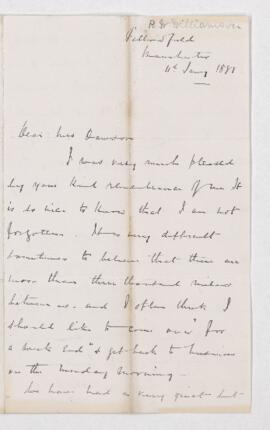 R W Williamson
Manchester
11th Jany 1881
Dear Mrs Dawson
I was very much pleased
by your kind remembrance of me. It
is so nice to know that I am not
forgotten. It is very difficult
sometimes to believe that there are
more than three thousand miles
between us. and I often think I
should like to come over "for
a week end" & get back to business
on the Monday morning -
We have had a very great but